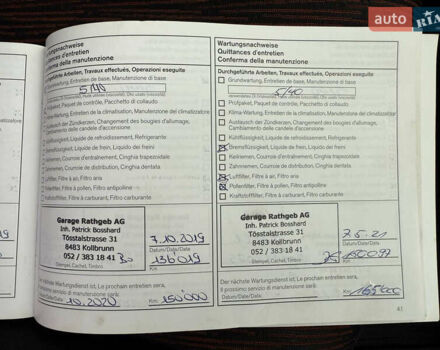 auto RIA
Wartungsnachweise
Quittances d'entretien
Conferma della manutenzione
Durchgeführte Arbeiten, Travaux effectués, Operazioni eseguite
Grundwartung, Entretien de base, Manutenzione di base
5/40
Prüfpaket, Paquet de contrôle, Pacchetto di collaudo
Klima-Wartung, Entretien de la climatisation, Manutenzione del climatizzatore
Austausch der Zündkerzen, Changement des bougies d'allumage,
Cambiamento delle candele d'accensione
Kühlflüssigkeit, Liquide de refroidissement, Refrigerante
Bremsflüssigkeit, Liquide de frein, Liquido dei freni
Keilriemen, Courroie d'entraînement, Cinghia trapezoidale
Zahnriemen, Courroie de distribution, Cinghia dentata
Luftfilter, Filtre à air, Filtro aria
Pollenfilter, Filtre à pollen, Filtro antipolline
Kraftstofffilter, Filtre à carburant, Filtro carburante
Garage Rathgeb AG
Inh. Patrick Bosshard
Tösstalstrasse 31
8483 Kollbrunn
052 / 383 18 41
7.10.2019
Datum/Date/Data
136019
Km
Stempel, Cachet, Timbro
Der nächste Wartungsdienst ist, Le prochain entretien sera,
Il prossimo servizio di manutenzione sarà:
10.2020
Datum/Date/Data
150000
Km
Wartungsnachweise
Quittances d'entretien
Conferma della manutenzione
Durchgeführte Arbeiten, Travaux effectués, Operazioni eseguite
Grundwartung, Entretien de base, Manutenzione di base
5/40
Prüfpaket, Paquet de contrôle, Pacchetto di collaudo
Klima-Wartung, Entretien de la climatisation, Manutenzione del climatizzatore
Austausch der Zündkerzen, Changement des bougies d'allumage,
Cambiamento delle candele d'accensione
Kühlflüssigkeit, Liquide de refroidissement, Refrigerante
Bremsflüssigkeit, Liquide de frein, Liquido dei freni
Keilriemen, Courroie d'entraînement, Cinghia trapezoidale
Zahnriemen, Courroie de distribution, Cinghia dentata
Luftfilter, Filtre à air, Filtro aria
Pollenfilter, Filtre à pollen, Filtro antipolline
Kraftstofffilter, Filtre à carburant, Filtro carburante
Garage Rathgeb AG
Inh. Patrick Bosshard
Tösstalstrasse 31
8483 Kollbrunn
052 / 383 18 41
7.5.21
Datum/Date/Data
Km
Stempel, Cachet, Timbro
Der nächste Wartungsdienst ist, Le prochain entretien sera,
Il prossimo servizio di manutenzione sarà:
Datum/Date/Data
165000
Km
41